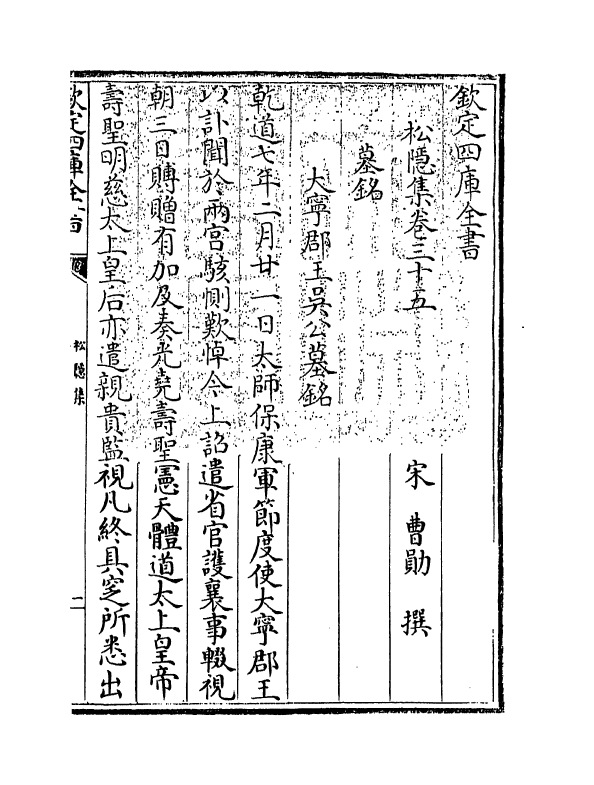 欽定四庫全書
松隱集卷三十五
宋 曹勛 撰
墓銘
大寧郡王吳公墓銘
乾道七年二月廿一日太師保康軍節度使大寧郡王
以訃聞於兩宫駭惻歎悼今上詔遣省官護襄事輟視
朝三日賻贈有加及奏光堯壽聖憲天體道太上皇帝
壽聖明慈太上皇后亦遣親貴監視凡終具窆所悉出
欽定四庫全書
松隱集